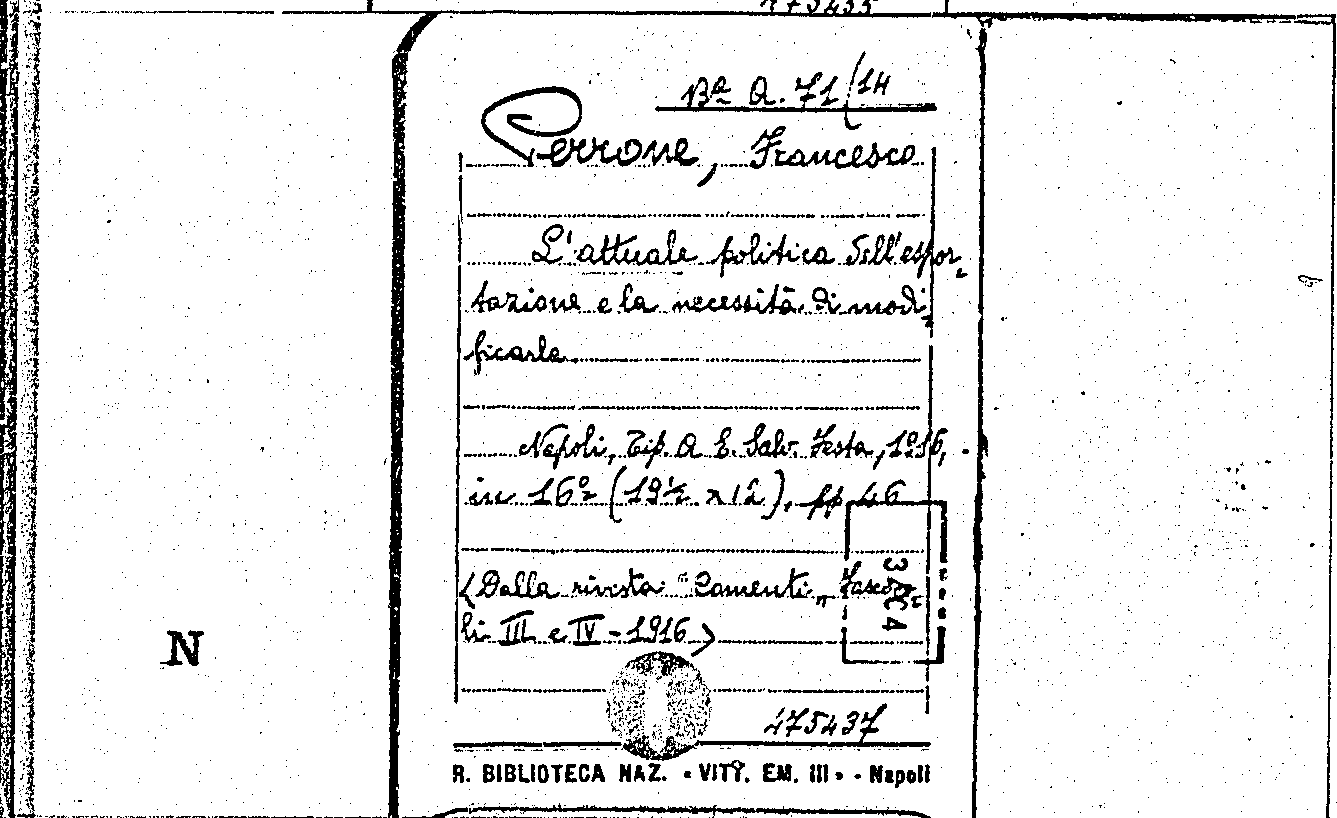 Bª Q. 71/14
Perrone, Francesco
L'attuale politica dell'espor-
tazione e la necessità di modi-
ficarla.
Napoli, Tip. A. E. Salv. Festa, 1916,
in 16º (19½ x 12), pp 46
(Dalla rivista "Comenti„ Fascico-
li III e IV - 1916)
N
475437
R. BIBLIOTECA NAZ. « VITT. EM. III » - Napoli